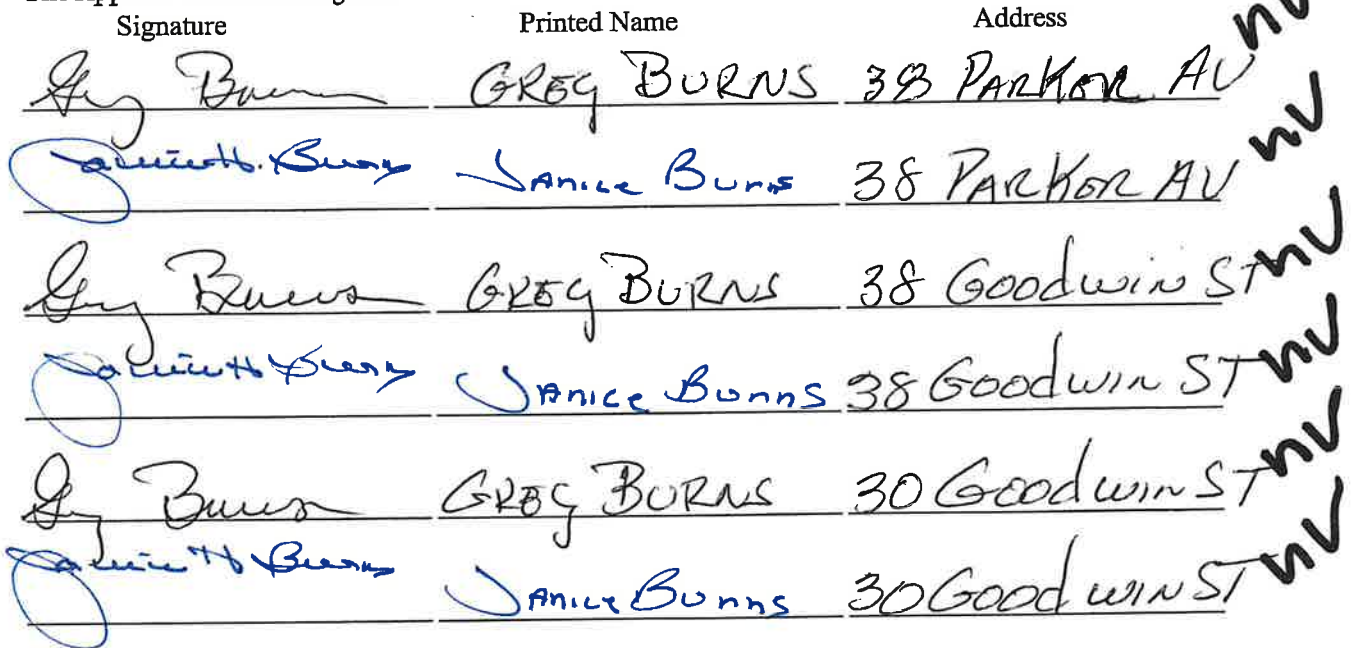 Signature Printed Name Address
Greg Burns GREG BURNS 38 PARKER AV nv
Janice H. Burns Janice Burns 38 PARKER AV nv
Greg Burns GREG BURNS 38 Goodwin ST nv
Janice H Burns Janice Burns 38 Goodwin ST nv
Greg Burns GREG BURNS 30 Goodwin ST nv
Janice H Burns Janice Burns 30 Goodwin ST nv